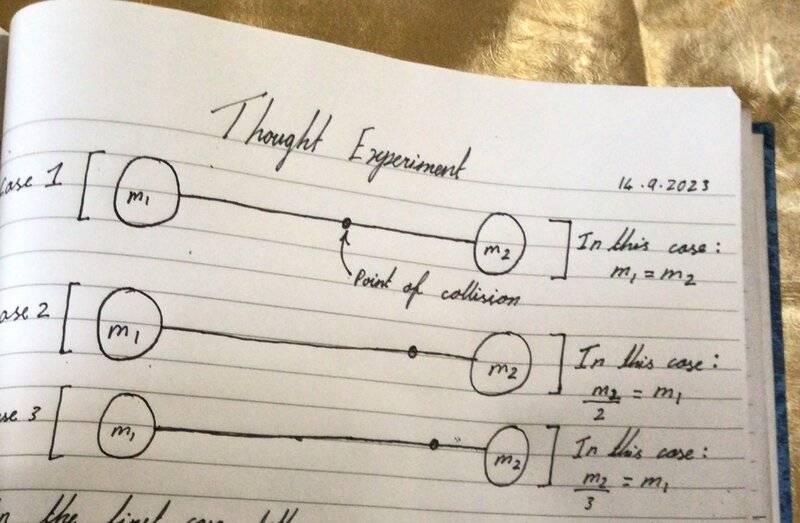 Thought Experiment
14.9.2023
case 1
m1
m2
In this case:
m1 = m2
Point of collision
ase 2
m1
m2
In this case:
m2/2 = m1
se 3
m1
m2
In this case:
m2/3 = m1
the first case